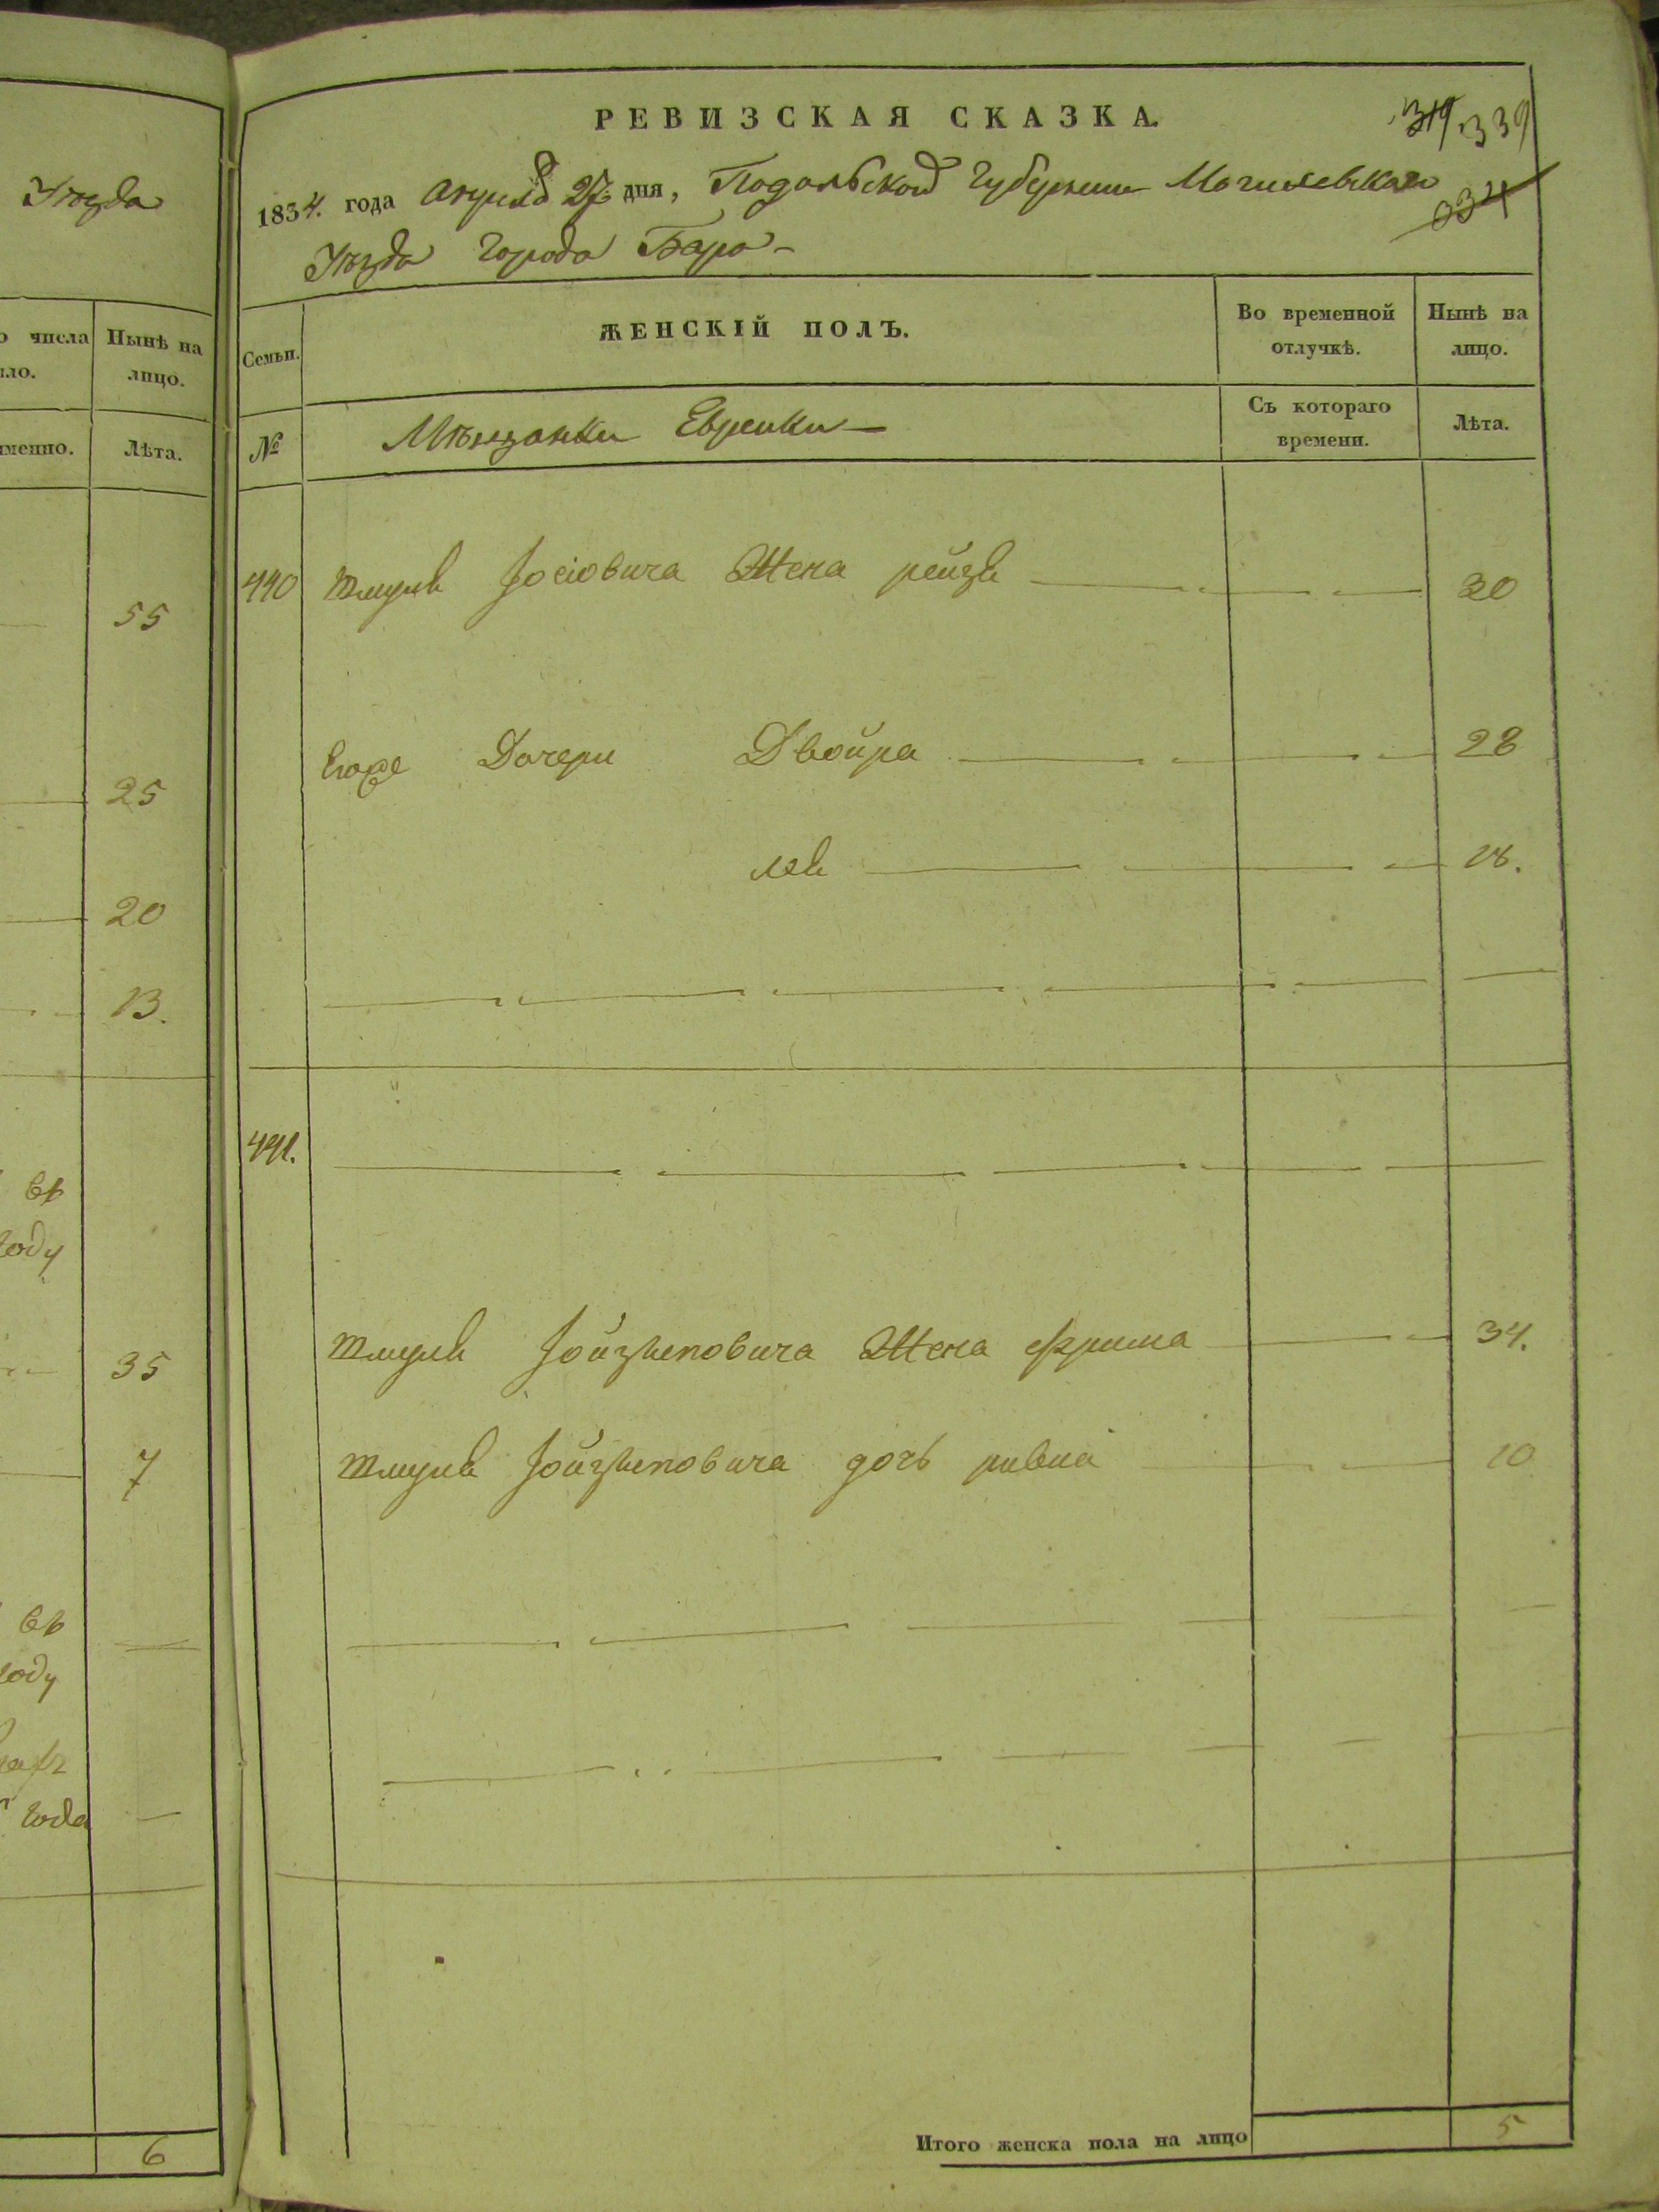 Уезда
о числа
ыло.
Нынѣ на
лицо.
именно.
Лѣта.
55
25
20
13.
въ
году
35
7
въ
году
года
6
РЕВИЗСКАЯ СКАЗКА.
319 339
334
1834. года апреля 27 дня, Подольской Губернии Могилевскаго
Уезда Города Бара
Семьи.
ЖЕНСКІЙ ПОЛЪ.
Во временной
отлучкѣ.
Нынѣ на
лицо.
№
Мѣщанки Еврейки
Съ котораго
времени.
Лѣта.
440 Шмуля Іосіовича Жена рейзя 30
Егоже Дочери Двойра 28
лея 18.
441.
Шмуля Жена фрима 34.
Шмуля дочь ривка 10
Итого женска пола на лицо 5